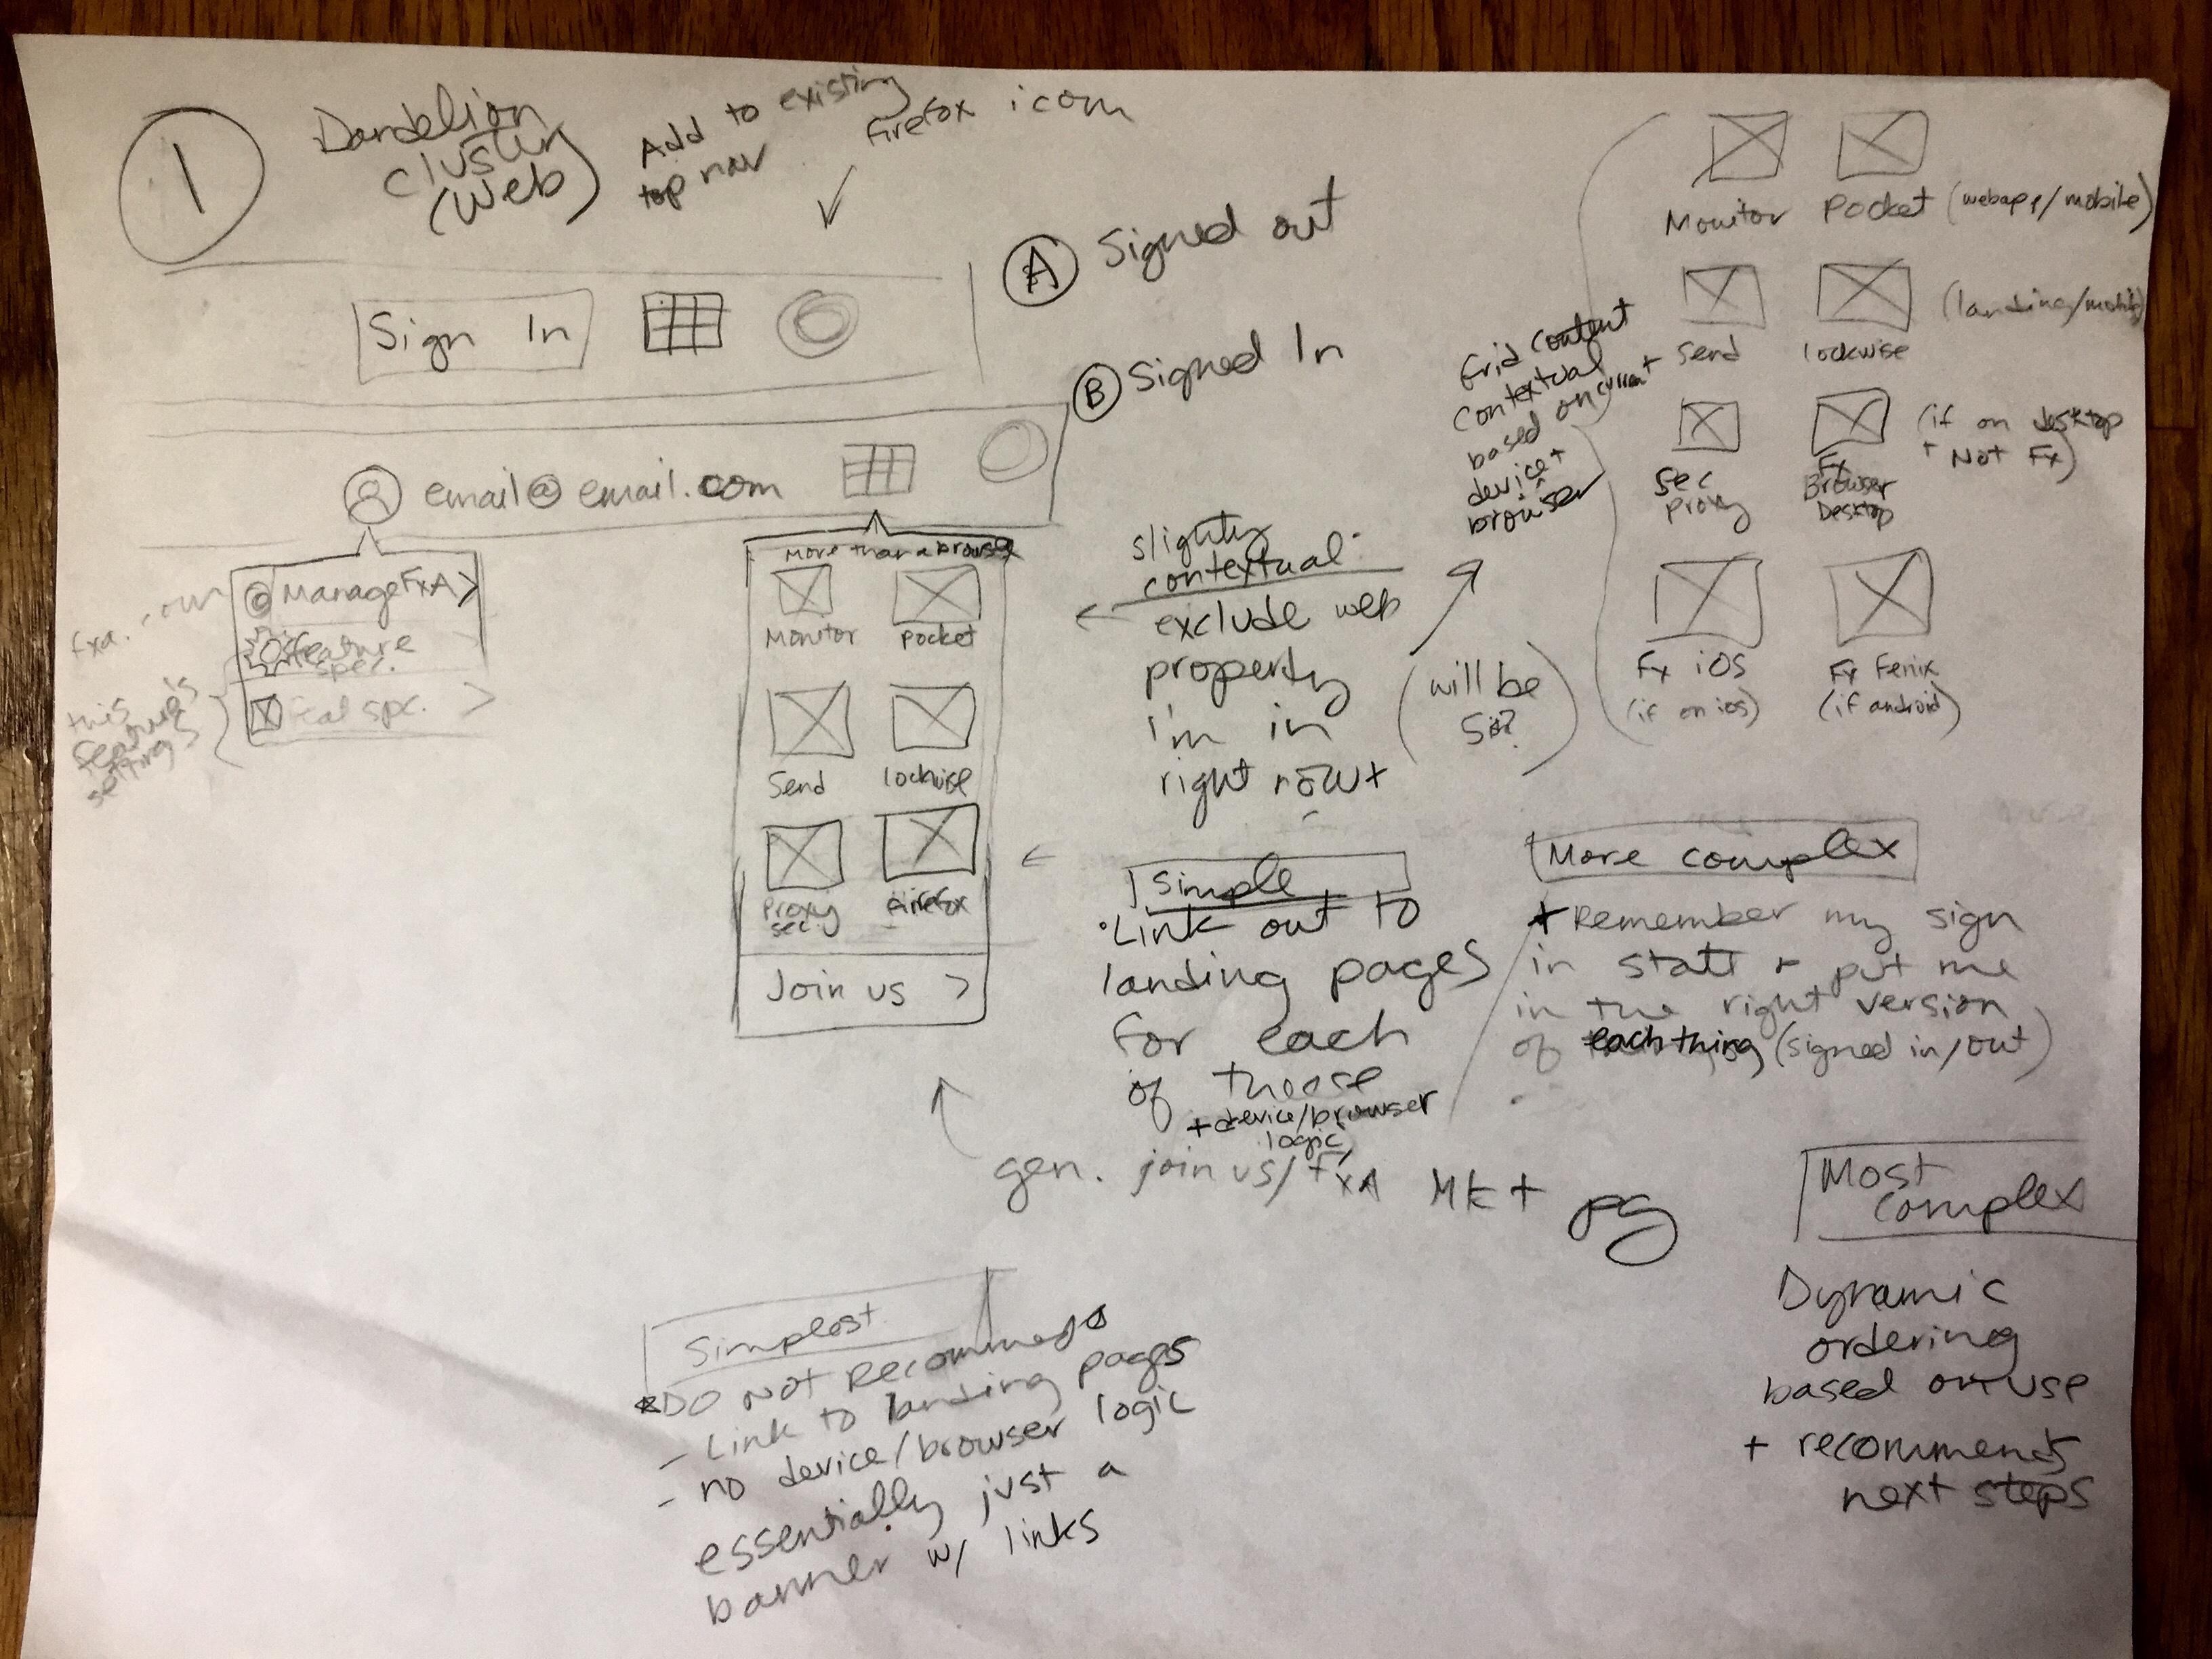 1
Dandelion
cluster
(Web)
Add to existing
top nav
Firefox icom
A Signed out
Sign In
B Signed In
email@email.com
Manage FxA >
feature
spec.
spc. >
fxa.
this
feature's
settings
More than a browser
Monitor
Pocket
Send
lockwise
Proxy
sec.
Firefox
Join us >
slighty
contextual
exclude web
property
I'm in
right now +
(will be
six?)
Grid content
contextual
based on current +
device +
browser
Monitor
Pocket (webapp/mobile)
Send
lockwise
(landing/mobile)
Sec
proxy
Fx
Browser
Desktop
(if on desktop
+ Not Fx)
Fx iOS
(if on ios)
Fx Fenix
(if android)
Simple
• Link out to
landing pages
for each
of those
+ device/browser
logic
gen. join us/FxA Mkt pg
More complex
+ Remember my sign
in state + put me
in the right version
of each thing (signed in/out)
Most
complex
Dynamic
ordering
based on use
+ recommends
next steps
Simplest
*DO NOT Recommend
- Link to landing pages
- no device/browser logic
essentially just a
banner w/ links